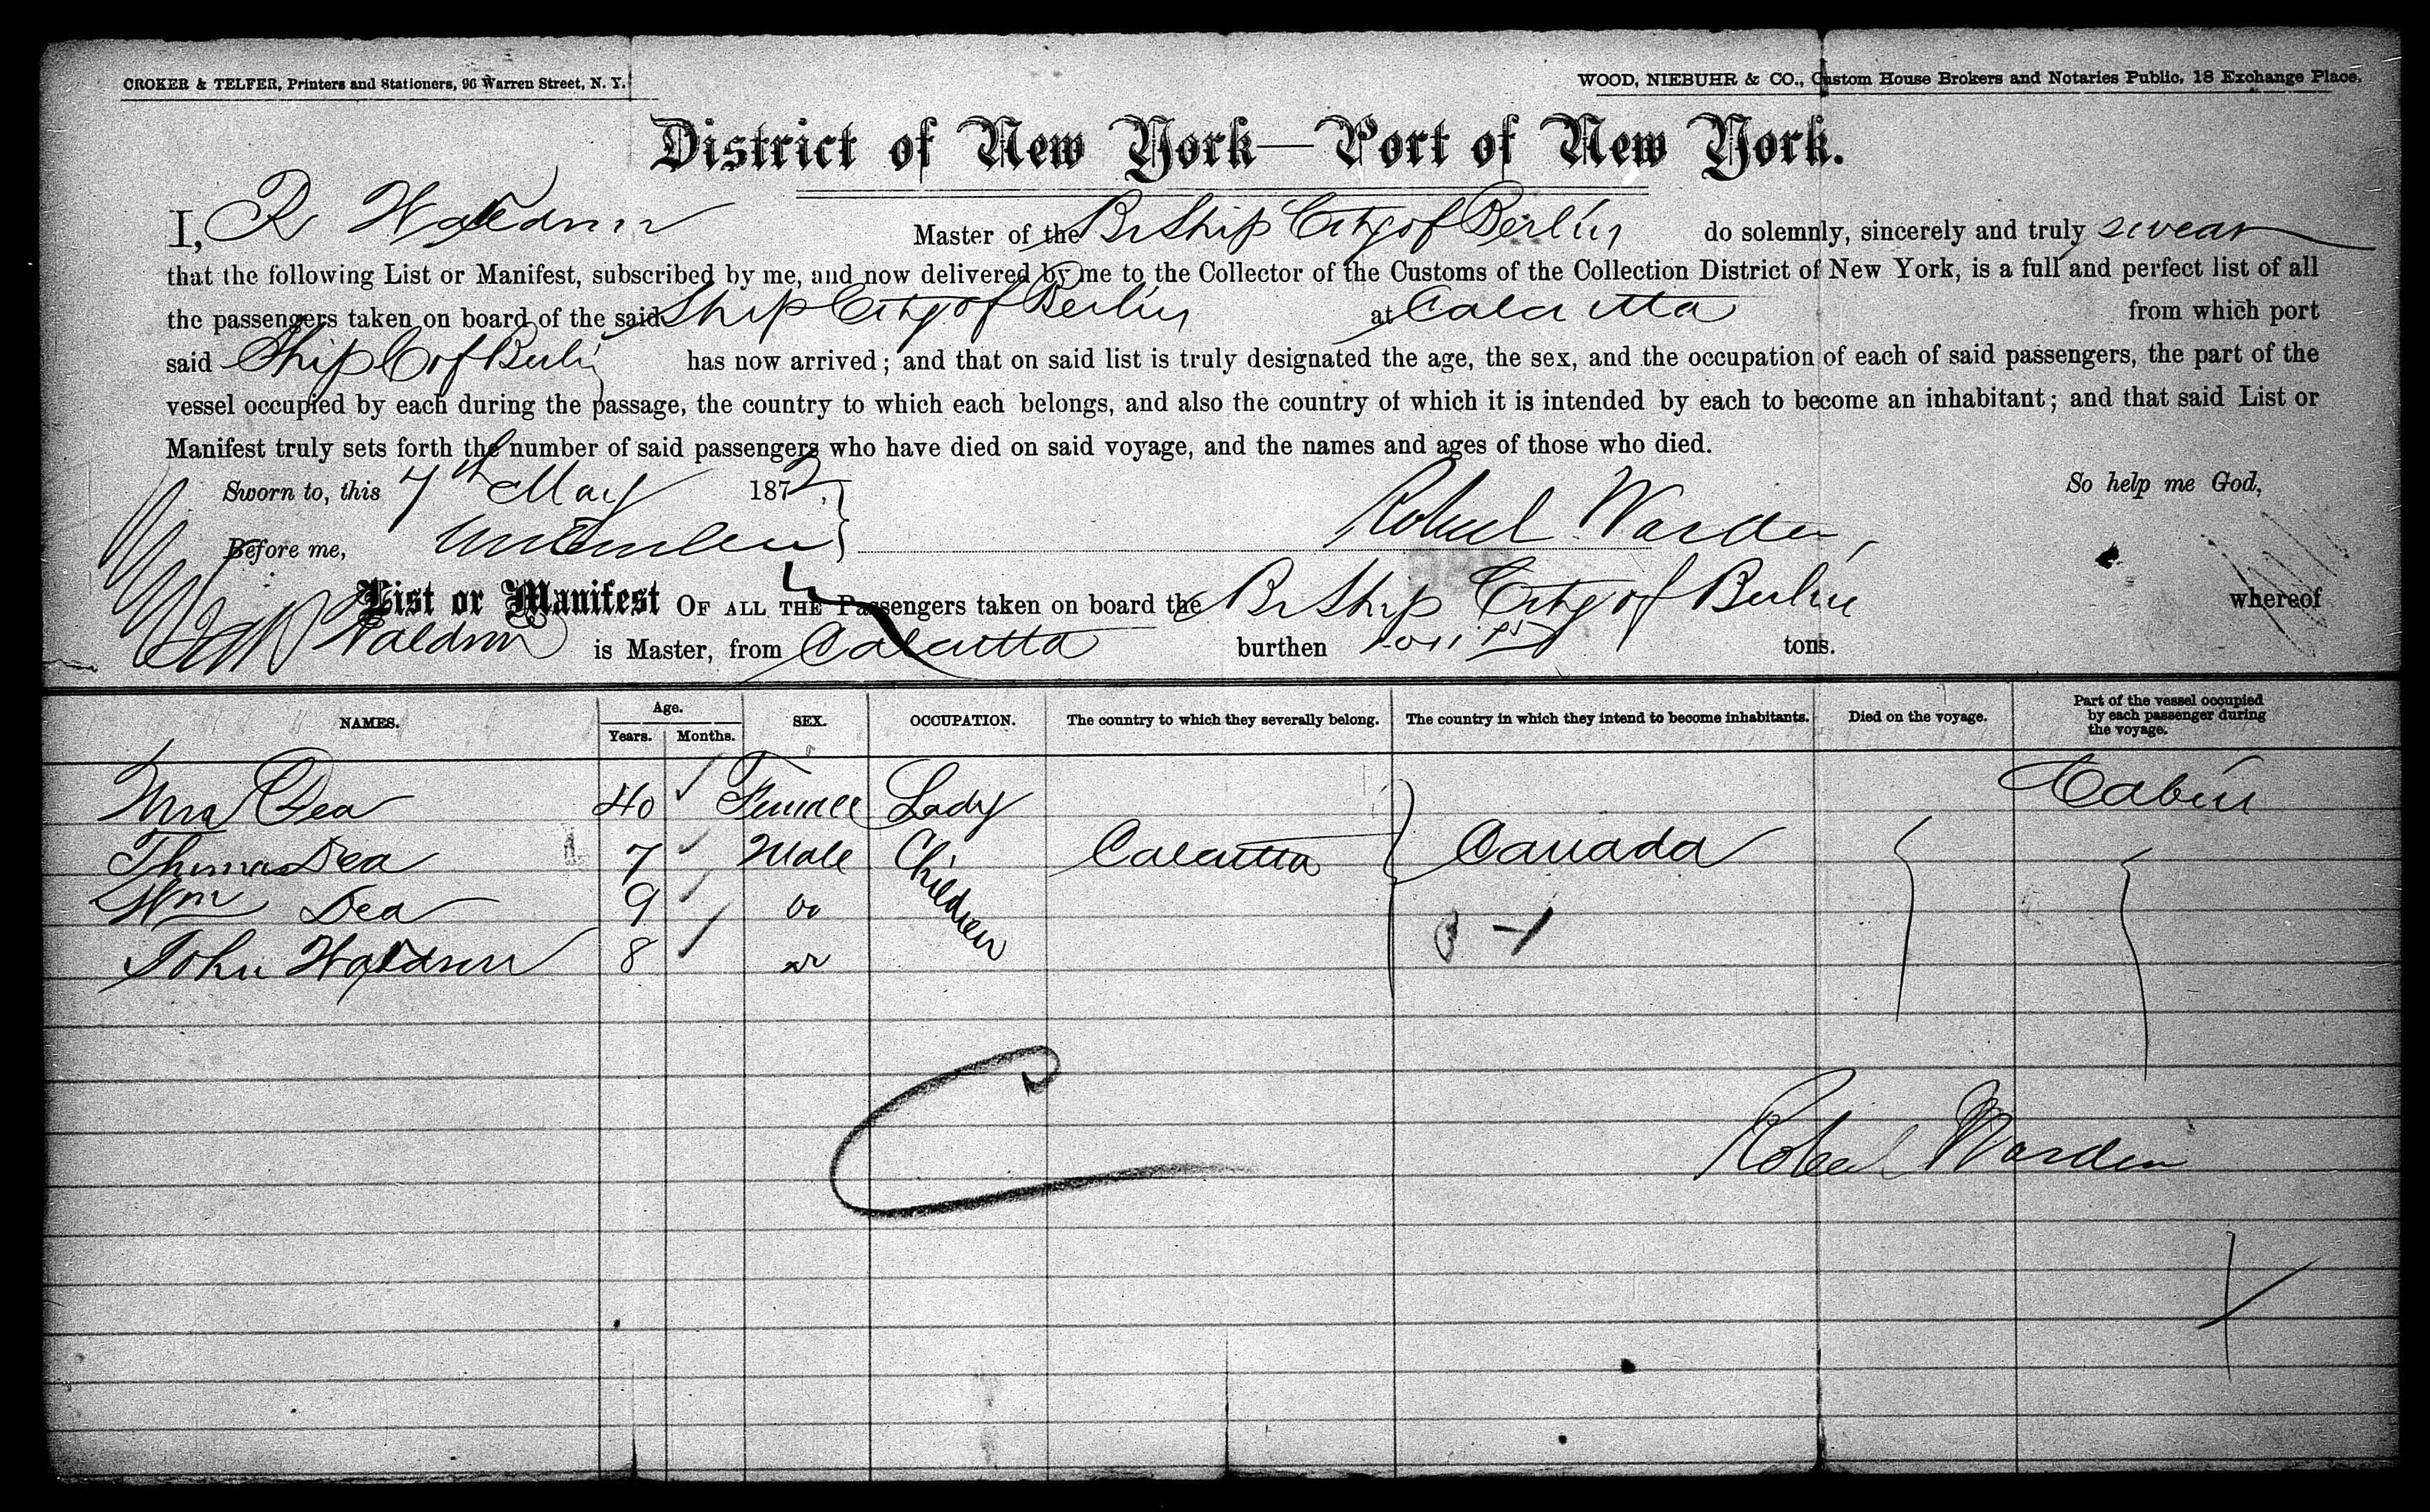 CROKER & TELFER, Printers and Stationers, 96 Warren Street, N. Y.
WOOD, NIEBUHR & CO., Custom House Brokers and Notaries Public, 18 Exchange Place.
District of New York—Port of New York.
I, R Waldron Master of the Br Ship City of Berlin do solemnly, sincerely and truly swear
that the following List or Manifest, subscribed by me, and now delivered by me to the Collector of the Customs of the Collection District of New York, is a full and perfect list of all
the passengers taken on board of the said Ship City of Berlin at Calcutta from which port
said Ship C of Berlin has now arrived; and that on said list is truly designated the age, the sex, and the occupation of each of said passengers, the part of the
vessel occupied by each during the passage, the country to which each belongs, and also the country of which it is intended by each to become an inhabitant; and that said List or
Manifest truly sets forth the number of said passengers who have died on said voyage, and the names and ages of those who died.
Sworn to, this 7th May 1872, So help me God,
Before me, Robert Warden
List or Manifest OF ALL THE Passengers taken on board the Br Ship City of Berlin whereof
Waldron is Master, from Calcutta burthen tons.
NAMES. Age. Years. Months. SEX. OCCUPATION. The country to which they severally belong. The country in which they intend to become inhabitants. Died on the voyage. Part of the vessel occupied by each passenger during the voyage.
Mrs Dea 40 Female Lady Cabin
Thomas Dea 7 Male Children Calcutta Canada
Wm Dea 9 Do
John Waldron 8 Do
Robert Warden